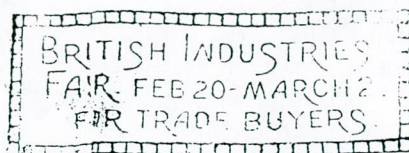 BRITISH INDUSTRIES
FAIR. FEB 20-MARCH 2.
FOR TRADE BUYERS